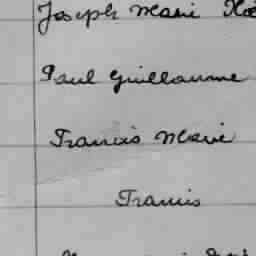 Joseph Marie
Paul Guillaume
Francis Marie
Francis